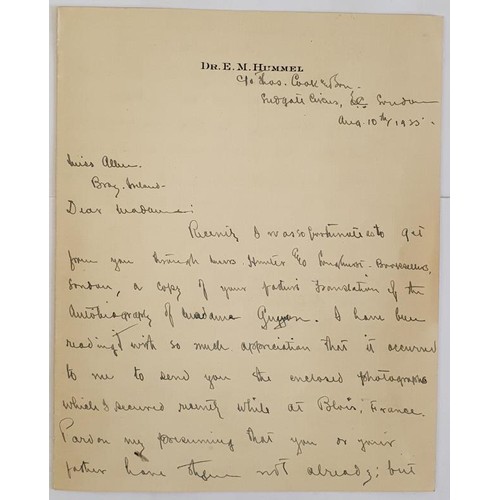 Dr. E. M. Hummel
c/o Thos. Cook & Son.
Ludgate Circus, E.C. London
Aug. 10th/1925.
Miss Allen.
Bray. Ireland-
Dear Madame:
Recently I was so fortunate as to get
from you through Miss Hunter c/o
London, a copy of your father's translation of the
Autobiography of Madame Guyon. I have been
reading it with so much appreciation that it occurred
to me to send you the enclosed photographs
which I secured recently while at Blois, France.
Pardon my presuming that you or your
father have them not already; but